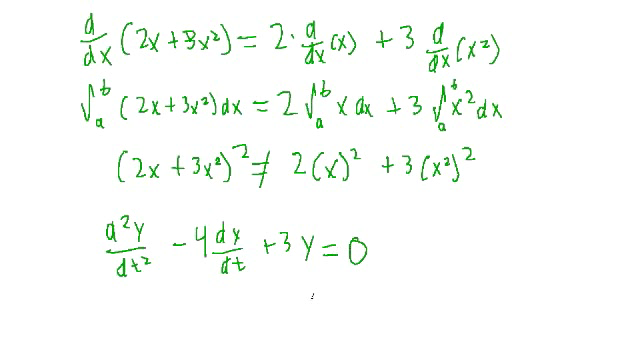 d/dx (2x + 3x²) = 2 · d/dx (x) + 3 d/dx (x²)
∫ₐᵇ (2x + 3x²) dx = 2 ∫ₐᵇ x dx + 3 ∫ₐᵇ x² dx
(2x + 3x²)² ≠ 2(x)² + 3(x²)²
d²y/dt² - 4 dy/dt + 3y = 0